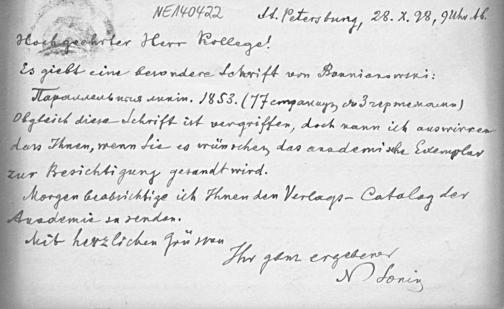 NE140422
St. Petersburg, 28.X.98, 9 Uhr Ab.
Hochgeehrter Herr Kollege!
Es giebt eine besondere Schrift von Bouniakowski:
Параллельныя линіи. 1853. (77 страницъ съ 3 чертежами)
Obgleich diese Schrift ist vergriffen, doch kann ich auswirken
dass Ihnen, wenn Sie es wünschen, das academische Exemplar
zur Besichtigung gesandt wird.
Morgen beabsichtige ich Ihnen den Verlags-Catalog der
Academie zu senden.
Mit herzlichen Grüssen
Ihr ganz ergebener
N Sonin